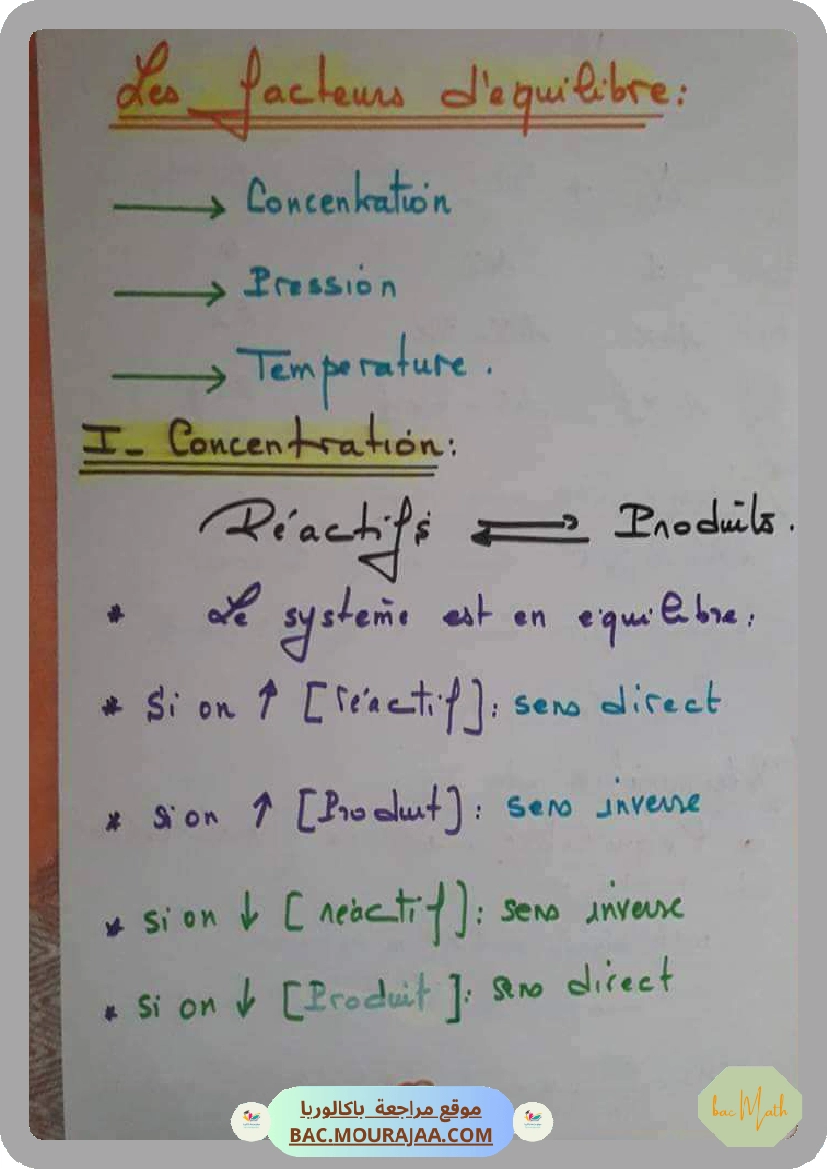 Les facteurs d'equilibre:
→ Concentration
→ Pression
→ Temperature.
I- Concentration:
Réactifs ⇌ Produits.
* Le système est en équilibre:
* Si on ↑ [réactif]: sens direct
* si on ↑ [Produit]: sens inverse
* si on ↓ [réactif]: sens inverse
* si on ↓ [Produit]: sens direct
موقع مراجعة باكالوريا
BAC.MOURAJAA.COM
bac Math